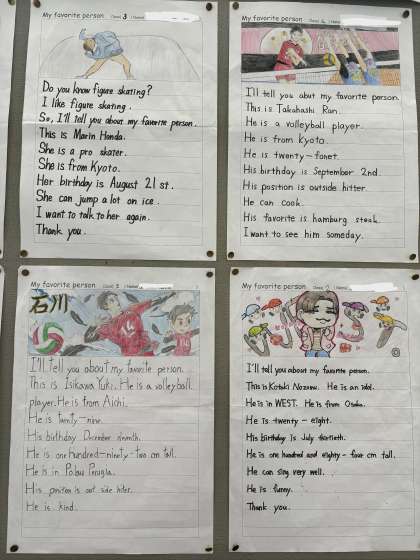 My favorite person Class( 3 )Name(
Do you know figure skating?
I like figure skating.
So, I'll tell you about my favorite person.
This is Marin Honda.
She is a pro skater.
She is from Kyoto.
Her birthday is August 21 st.
She can jump a lot on ice.
I want to talk to her again.
Thank you.
My favorite person Class( ) Name
I'll tell you abut my favorite person.
This is Takahashi Ran.
He is a volleyball player.
He is from Kyoto.
He is twenty-
His birthday is September 2nd.
His position is outside hitter.
He can cook.
His favorite is hamburg steak.
I want to see him someday.
My favorite person Class( 3 )Name
石川
I'll tell you about my favorite person.
This is Isikawa Yuki. He is a volleyball
player. He is from Aichi.
He is twenty-nine.
His birthday December eleventh.
He is one hundred-ninety-two cm tall.
He is in Perugia.
His position is out side hiter.
He is kind.
My favorite person Class( ) Name
I'll tell you about my favorite person.
This is Kotaki Nozomu. He is an idol.
He is in WEST. He is from Osaka.
He is twenty-eight.
His birthday is July thirtieth.
He is one hundred and eighty-four cm tall.
He can sing very well.
He is funny.
Thank you.